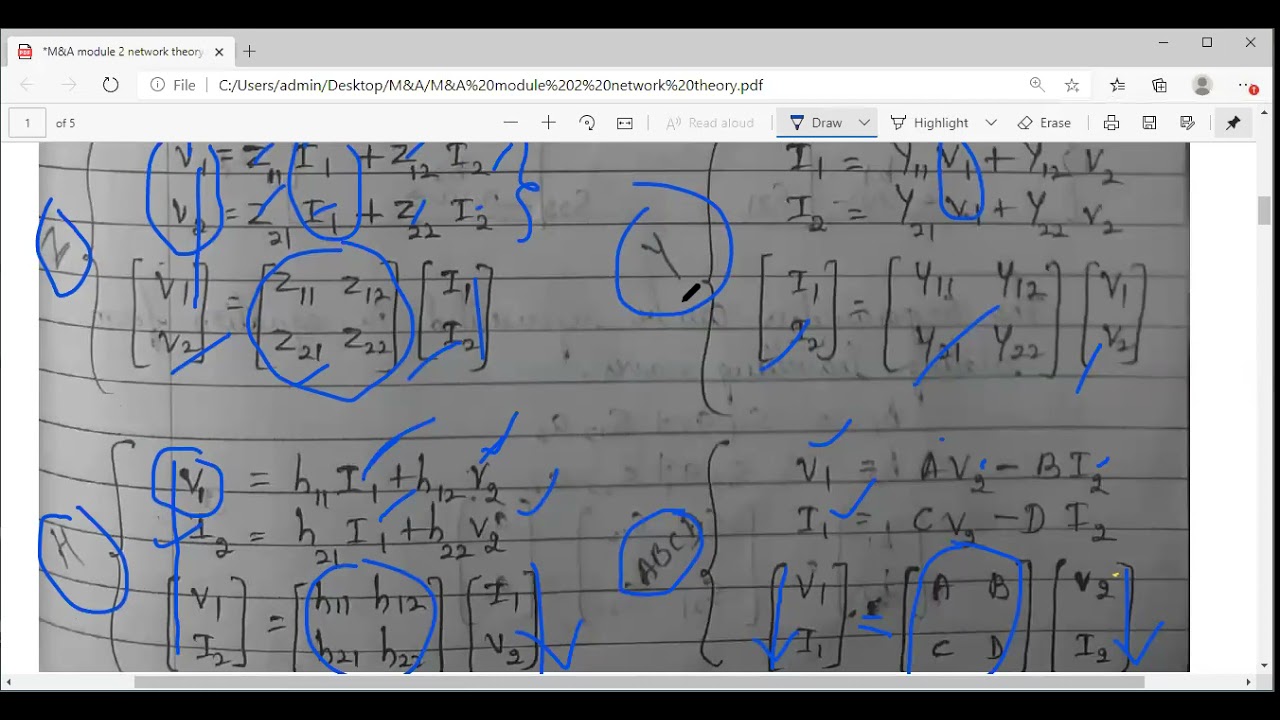 *M&A module 2 network theory.
File C:/Users/admin/Desktop/M&A/M&A%20module%202%20network%20theory.pdf
1 of 5 Read aloud Draw Highlight Erase
V1 = Z11 I1 + Z12 I2
V2 = Z21 I1 + Z22 I2
Z
[V1 V2] = [Z11 Z12 Z21 Z22] [I1 I2]
I1 = Y11 V1 + Y12 V2
I2 = Y21 V1 + Y22 V2
Y
[I1 I2] = [Y11 Y12 Y21 Y22] [V1 V2]
V1 = h11 I1 + h12 V2
I2 = h21 I1 + h22 V2
H
[V1 I2] = [h11 h12 h21 h22] [I1 V2]
V1 = AV2 - BI2
I1 = CV2 - D I2
ABCD
[V1 I1] = [A B C D] [V2 I2]